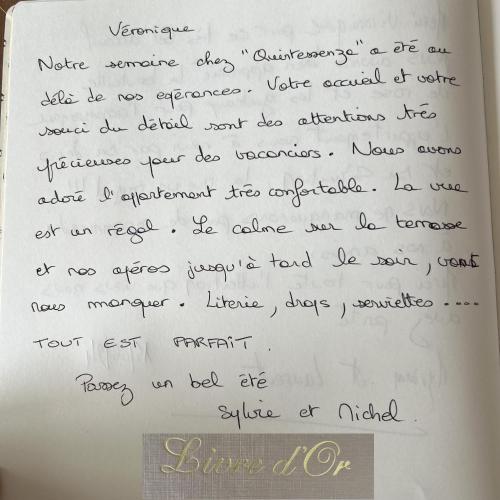 Véronique
Notre semaine chez "Quintessenza" a été au
délà de nos espérances. Votre accueil et votre
souci du détail sont des attentions très
précieuses pour des vacanciers. Nous avons
adoré l'appartement très confortable. La vue
est un régal. Le calme sur la terrasse
et nos apéros jusqu'à tard le soir, vont
nous manquer. Literie, draps, serviettes ....
TOUT EST PARFAIT.
Passez un bel été
Sylvie et Michel.
Livre d'Or